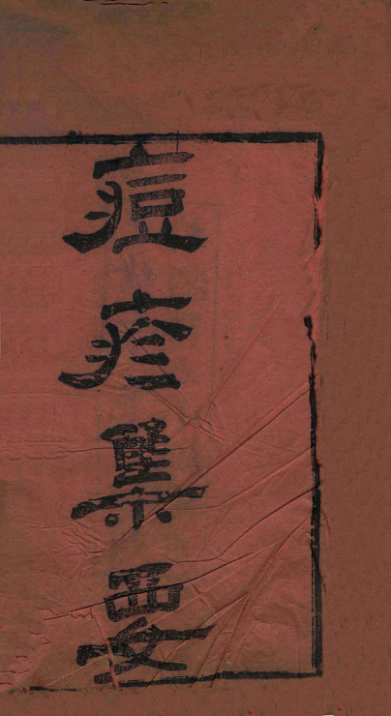 痘疹集要